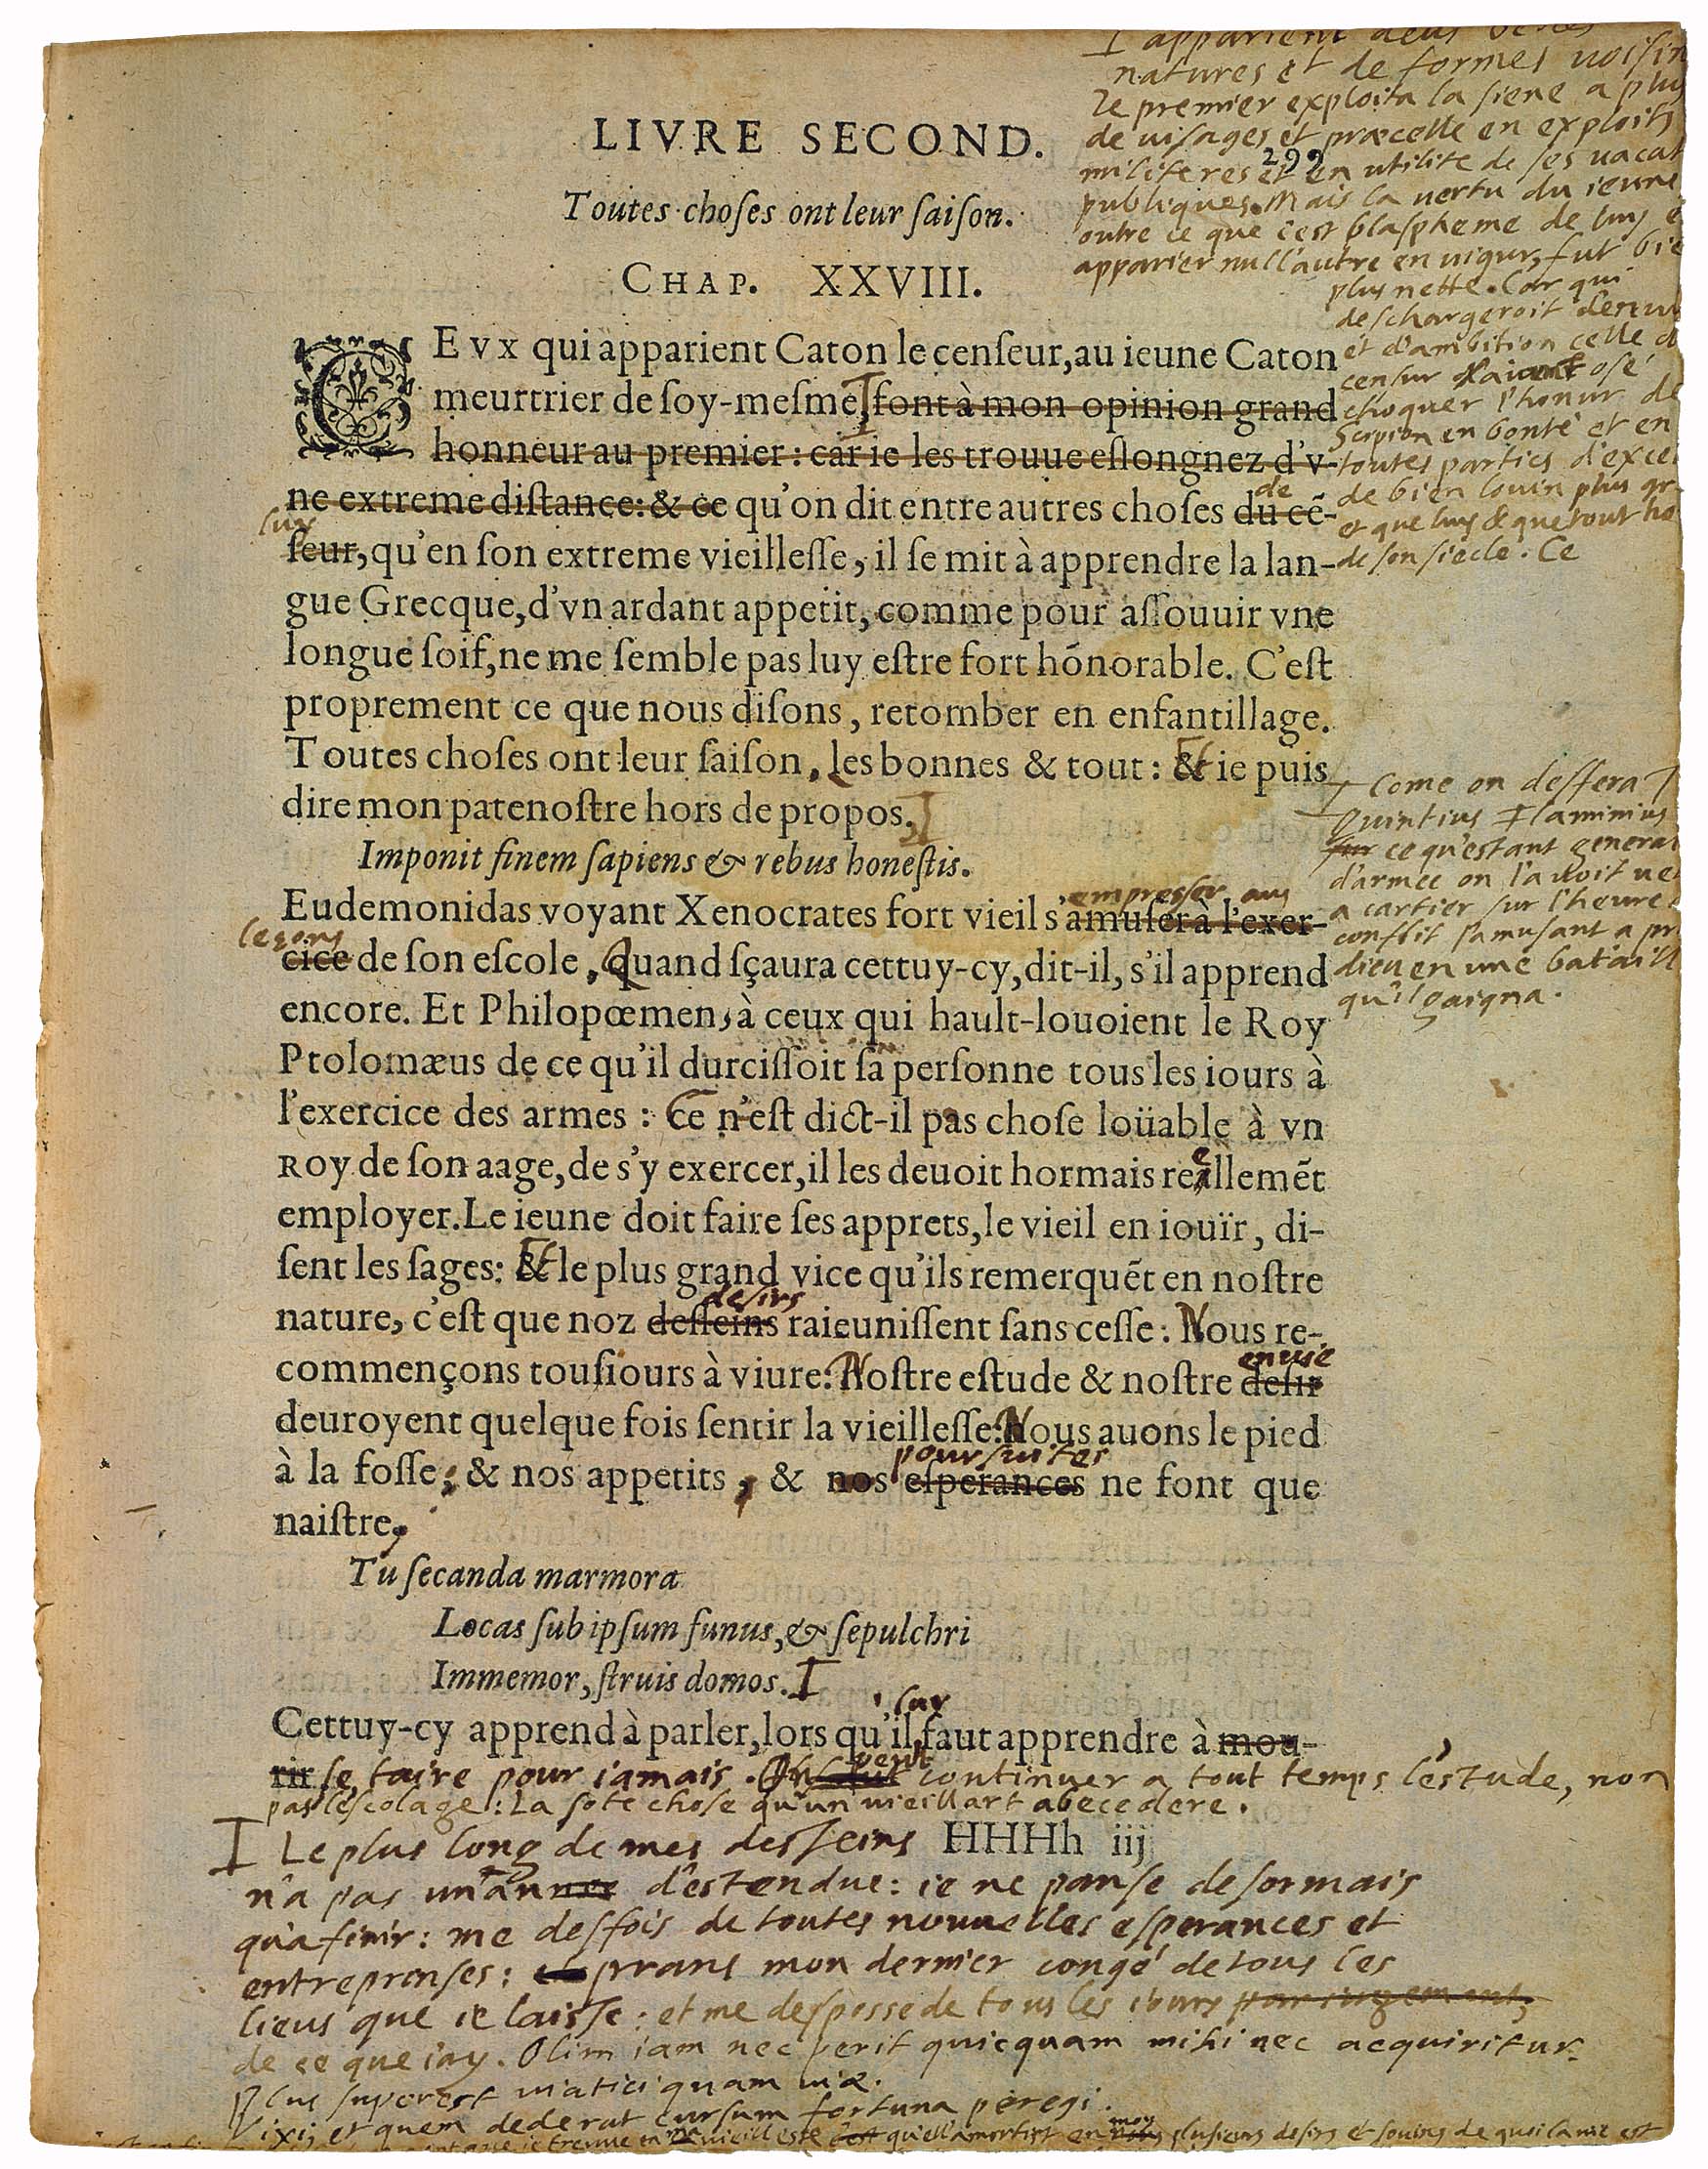 I apparient deus
natures et de formes uoisin
Le premier exploita la siene a plus
de uisages et præcelle en exploits
militeres et en utilite de ses uacat
publiques. Mais la uertu du ieune
outre ce que c'est blaspheme de luy e
apparier null'autre en uigur, fut bie
plus nette. Car qui
deschargeroit d'enuie
et d'ambition celle d
censur aiant osé
choquer l'honur de
Scipion en bonté et en
toutes parties d'excel
de bien louin plus gr
et que luy & que tout ho
de son siecle. Ce
LIVRE SECOND.
299
Toutes choses ont leur saison.
CHAP. XXVIII.
CEVX qui apparient Caton le censeur, au ieune Caton
meurtrier de soy-mesme, font à mon opinion grand
honneur au premier: car ie les trouue eslongnez d'v-
ne extreme distance: & ce qu'on dit entre autres choses du cē-
de
luy
seur, qu'en son extreme vieillesse, il se mit à apprendre la lan-
gue Grecque, d'vn ardant appetit, comme pour assouuir vne
longue soif, ne me semble pas luy estre fort hōnorable. C'est
proprement ce que nous disons, retomber en enfantillage.
Toutes choses ont leur saison, les bonnes & tout: Et ie puis
dire mon patenostre hors de propos.
I Come on deffera T
Quintius Flaminius
sur ce qu'estant general
d'armee on l'auoit ue
a cartier sur l'heure
conflit s'amusant a pri
dieu en une bataill
qu'il gaigna.
Imponit finem sapiens & rebus honestis.
Eudemonidas voyant Xenocrates fort vieil s'amuser à l'exer-
empresser aus
leçons
cice de son escole, Quand sçaura cettuy-cy, dit-il, s'il apprend
encore. Et Philopœmen, à ceux qui hault-louoient le Roy
Ptolomæus de ce qu'il durcissoit sa personne tous les iours à
l'exercice des armes: Ce n'est dict-il pas chose loüable à vn
Roy de son aage, de s'y exercer, il les deuoit hormais reellemēt
employer. Le ieune doit faire ses apprets, le vieil en iouïr, di-
sent les sages: Et le plus grand vice qu'ils remerquēt en nostre
desirs
nature, c'est que noz desseins raieunissent sans cesse: Nous re-
commençons tousiours à viure: Nostre estude & nostre desir
enuie
deuroyent quelque fois sentir la vieillesse: Nous auons le pied
poursuites
à la fosse; & nos appetits, & nos esperances ne font que
naistre,
Tu secanda marmora
Locas sub ipsum funus, & sepulchri
Immemor, struis domos. I
luy
Cettuy-cy apprend à parler, lors qu'il faut apprendre à mou-
rir se taire pour iamais. On peut continuer a tout temps l'estude, non
pas l'escolage: La sote chose qu'un uieillart abecedere.
HHHh iij
I Le plus long de mes desseins
n'a pas un'annee d'estendue: ie ne panse desormais
qu'a finir: me desfois de toutes nouuelles esperances et
entreprinses: prans mon dernier congé de tous les
lieus que ie laisse: et me despossede tous les iours par iugement,
de ce que i'ay. Olim iam nec perit quicquam mihi nec acquiritur.
Plus superest uiatici quam uiæ.
Vixi, et quem dederat cursum fortuna peregi.
ie treuue en ma uieillesse c'est qu'ell'amortist en moy nous plusieurs desirs & souins de quoi la uie est